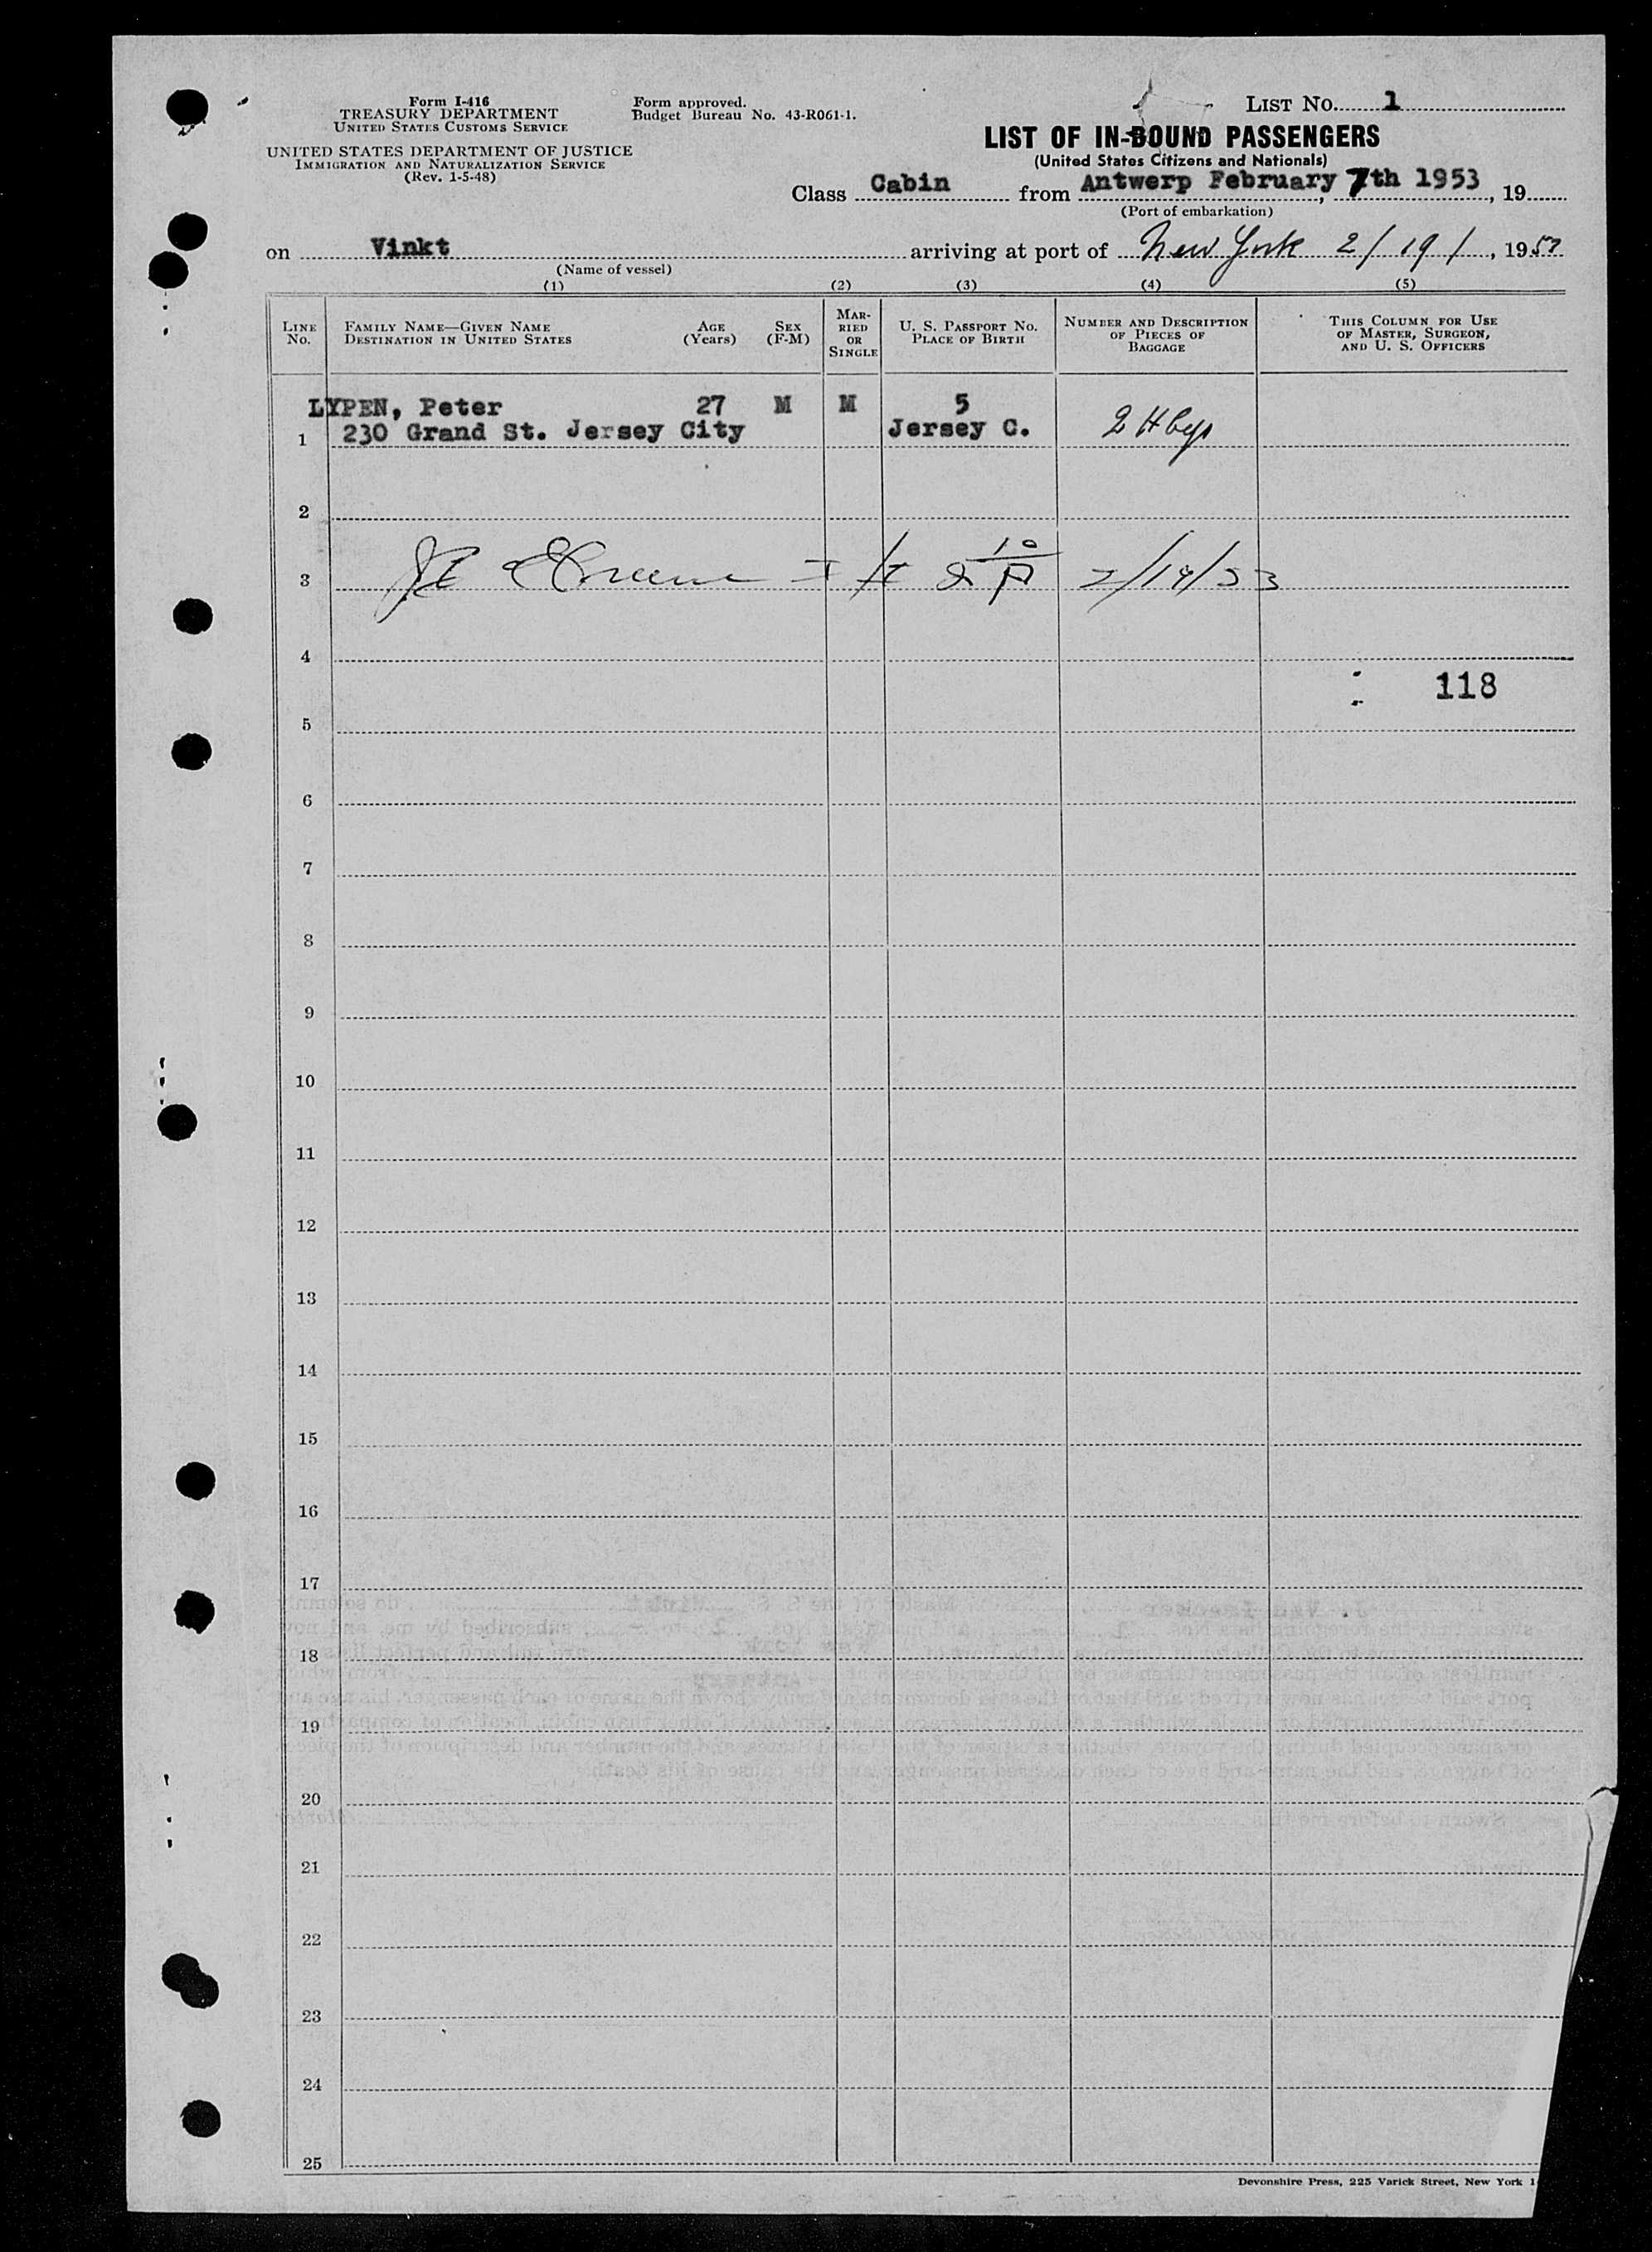 Form I-416
TREASURY DEPARTMENT
UNITED STATES CUSTOMS SERVICE
UNITED STATES DEPARTMENT OF JUSTICE
IMMIGRATION AND NATURALIZATION SERVICE
(Rev. 1-5-48)
Form approved.
Budget Bureau No. 43-R061-1.
LIST NO. 1
LIST OF IN-BOUND PASSENGERS
(United States Citizens and Nationals)
Class Cabin from Antwerp February 7th 1953, 19
(Port of embarkation)
on Vinkt arriving at port of New York 2/19/, 1953
(Name of vessel)
(1) (2) (3) (4) (5)
LINE NO.
FAMILY NAME—GIVEN NAME
DESTINATION IN UNITED STATES
AGE (Years)
SEX (F-M)
MARRIED OR SINGLE
U. S. PASSPORT NO.
PLACE OF BIRTH
NUMBER AND DESCRIPTION
OF PIECES OF
BAGGAGE
THIS COLUMN FOR USE
OF MASTER, SURGEON,
AND U. S. OFFICERS
LYPEN, Peter 27 M M 5
1 230 Grand St. Jersey City Jersey C.
2
3 2/19/53
4
118
5
6
7
8
9
10
11
12
13
14
15
16
17
18
19
20
21
22
23
24
25
Devonshire Press, 225 Varick Street, New York